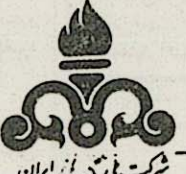 شرکت ملی نفت ایران